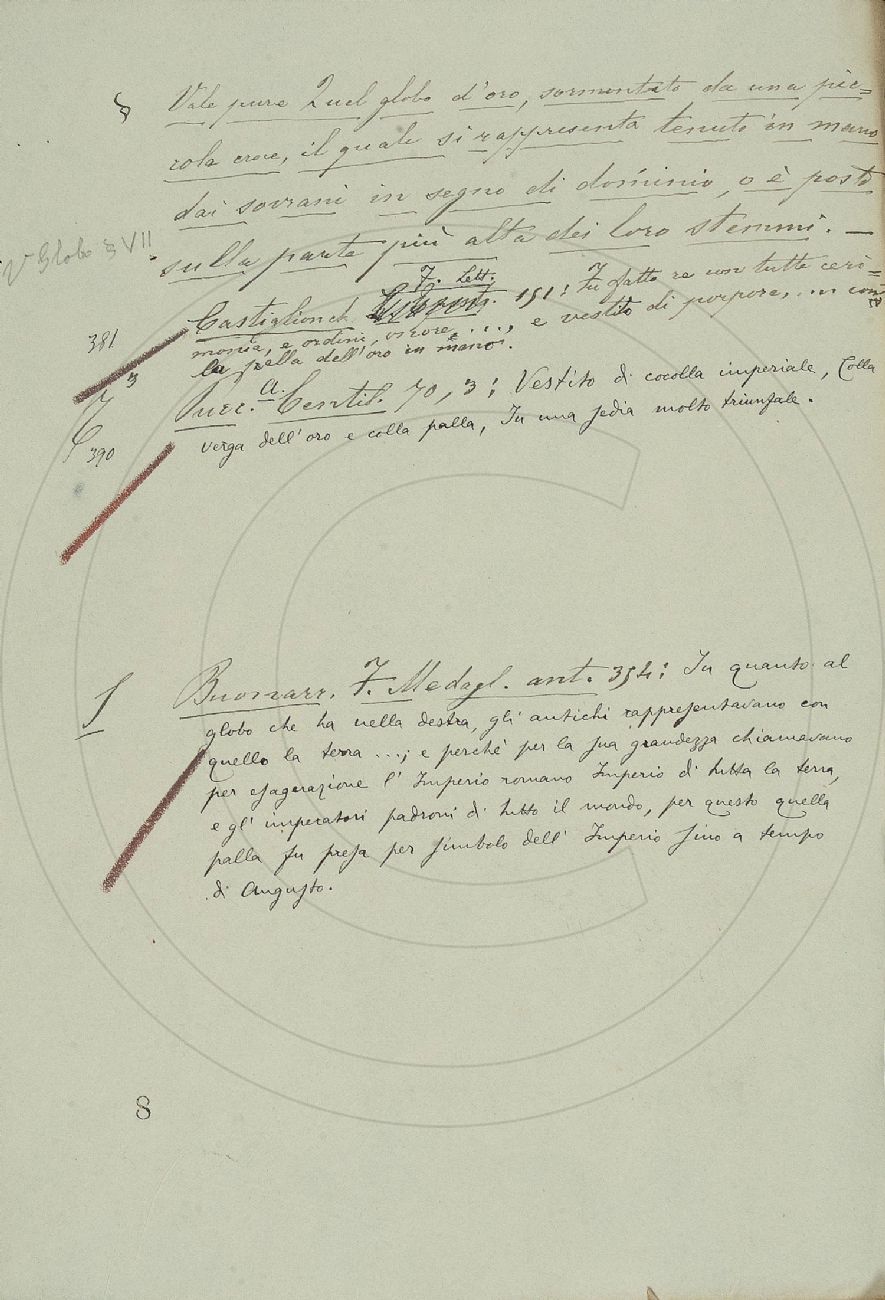 § Vale pure Quel globo d'oro, sormontato da una pic=
cola croce, il quale si rappresenta tenuto in mano
dai sovrani in segno di dominio, o è posto
sulla parte più alta dei loro stemmi. —
V Globo § VII
F. Lett.
Castiglionch. 151: Fu fatto re con tutte ceri=
monia, e ordini, onore, ..., e vestito di porpore, ... con
la palla dell'oro in mano.
381
3
Pucc. A. Centil. 70, 3: Vestito di cocolla imperiale, Colla
verga dell'oro e colla palla, In una sedia molto triunfale.
390
Buonarr. F. Medagl. ant. 354: In quanto al
globo che ha nella destra, gli antichi rappresentavano con
quello la terra ...; e perchè per la sua grandezza chiamavano
per esagerazione l'Imperio romano Imperio di tutta la terra,
e gl'imperatori padroni di tutto il mondo, per questo quella
palla fu presa per simbolo dell'Imperio sino a tempo
di Augusto.
8